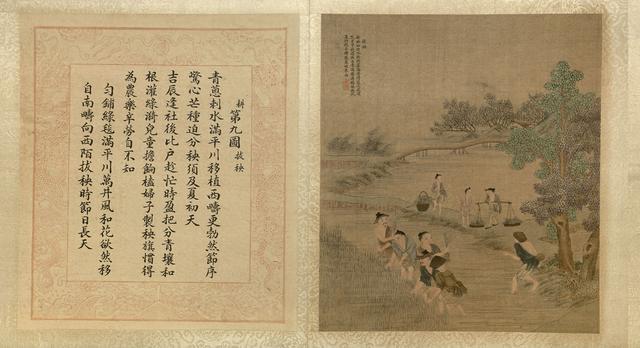 耕第九圖拔秧
青蔥刺水滿平川移植西疇更勃然節序
驚心芒種迫分秧須及夏初天
吉辰逢社後比戶趁忙時盈把分青壤和
根灌綠漪兒童擔餉榼婦子製秧旗慣得
為農樂辛勞自不知
勻鋪綠毯滿平川萬井風和花欲然移
自南疇向西陌拔秧時節日長天